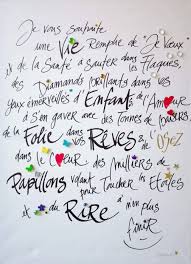 Je vous souhaite
une Vie Remplie de "Je Veux"
& de la Santé à Sauter dans les Flaques,
des Diamands brillants dans vos
yeux émerveillés d'Enfants de l'Amour
à s'en gaver avec des tonnes de
de la Folie dans vos Rêves & de l'Osez
dans le Cœur des Milliers de
Papillons volant pour Toucher les Etoiles
& du Rire à n'en plus
finir